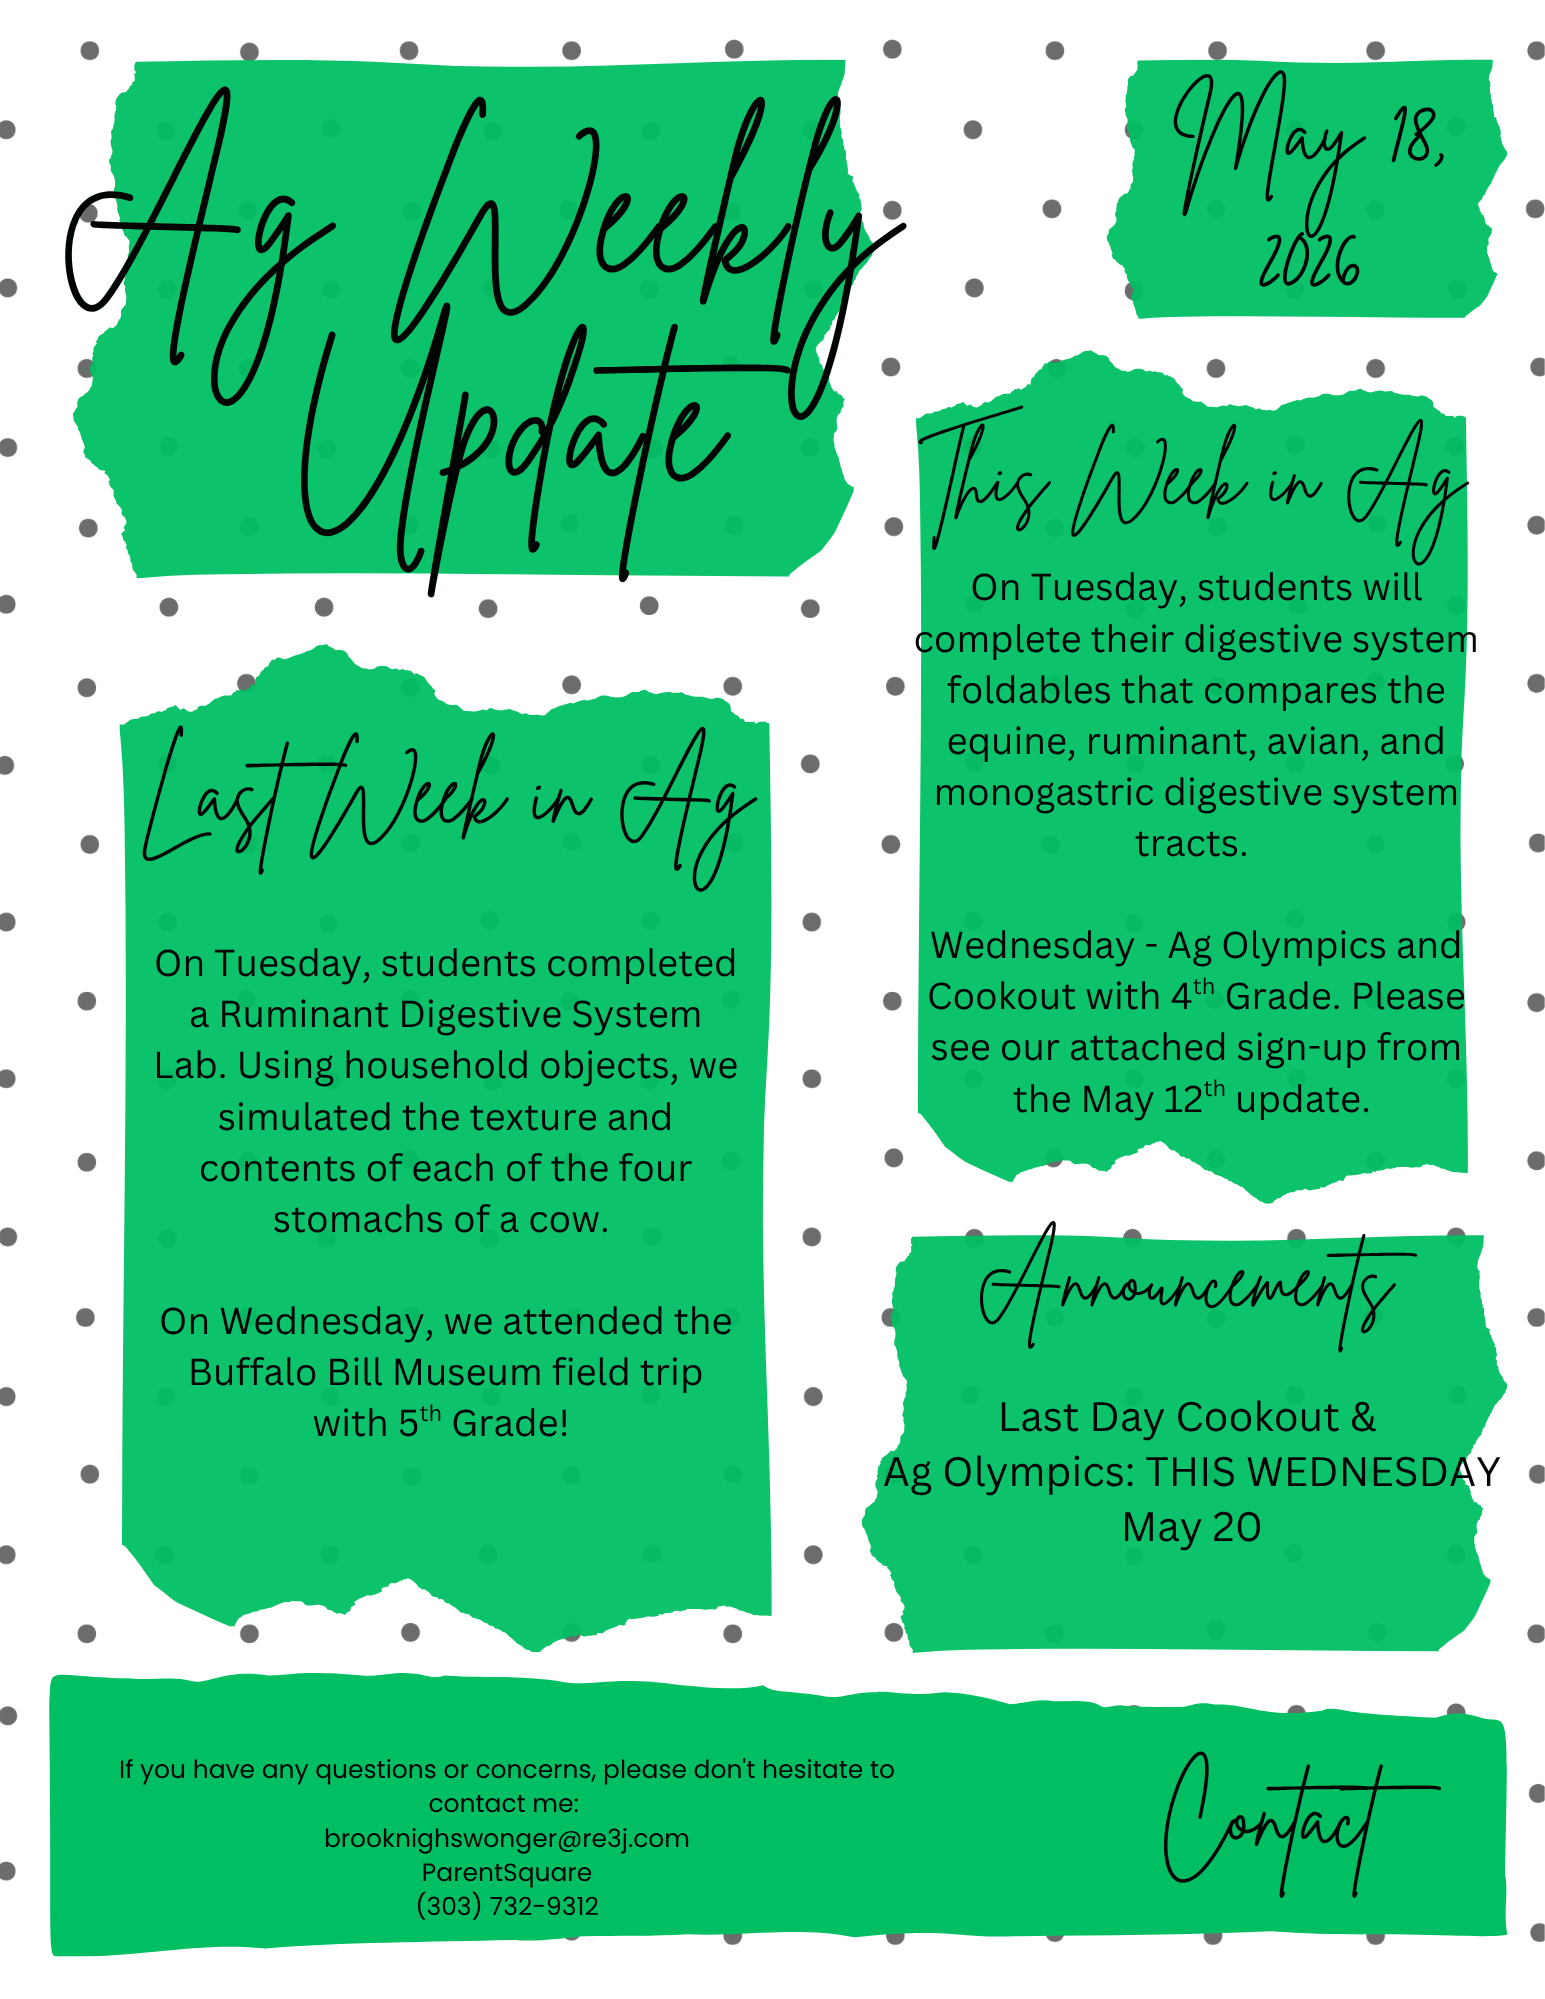 Ag Weekly
Update
May 18,
2026
Last Week in Ag
On Tuesday, students completed
a Ruminant Digestive System
Lab. Using household objects, we
simulated the texture and
contents of each of the four
stomachs of a cow.
On Wednesday, we attended the
Buffalo Bill Museum field trip
with 5th Grade!
This Week in Ag
On Tuesday, students will
complete their digestive system
foldables that compares the
equine, ruminant, avian, and
monogastric digestive system
tracts.
Wednesday - Ag Olympics and
Cookout with 4th Grade. Please
see our attached sign-up from
the May 12th update.
Announcements
Last Day Cookout &
Ag Olympics: THIS WEDNESDAY
May 20
If you have any questions or concerns, please don't hesitate to
contact me:
brooknighswonger@re3j.com
ParentSquare
(303) 732-9312
Contact